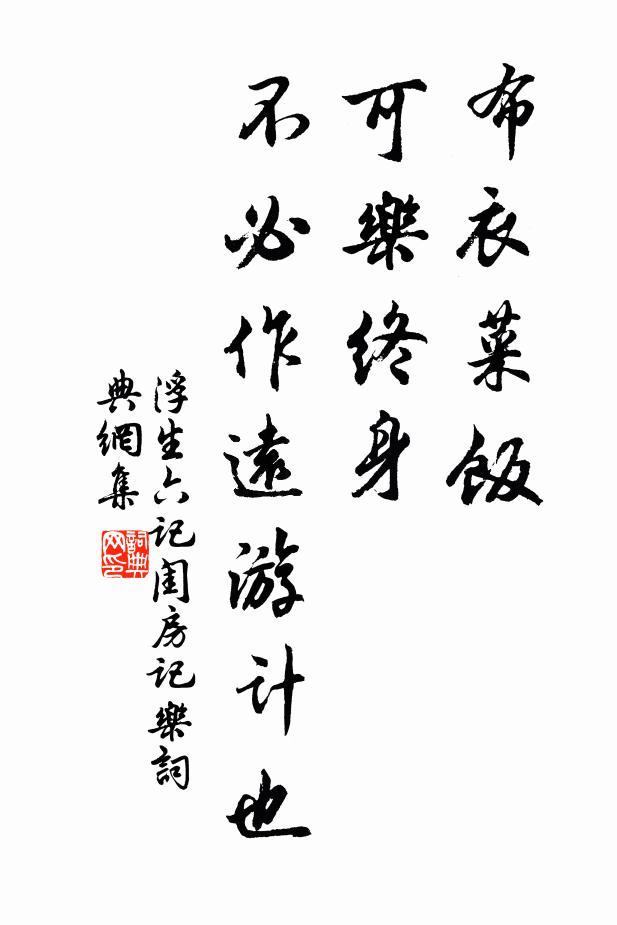 布衣菜飯
可樂終身
不必作遠游計也
浮生六记闺房记樂詞
典網集
詞典
网印